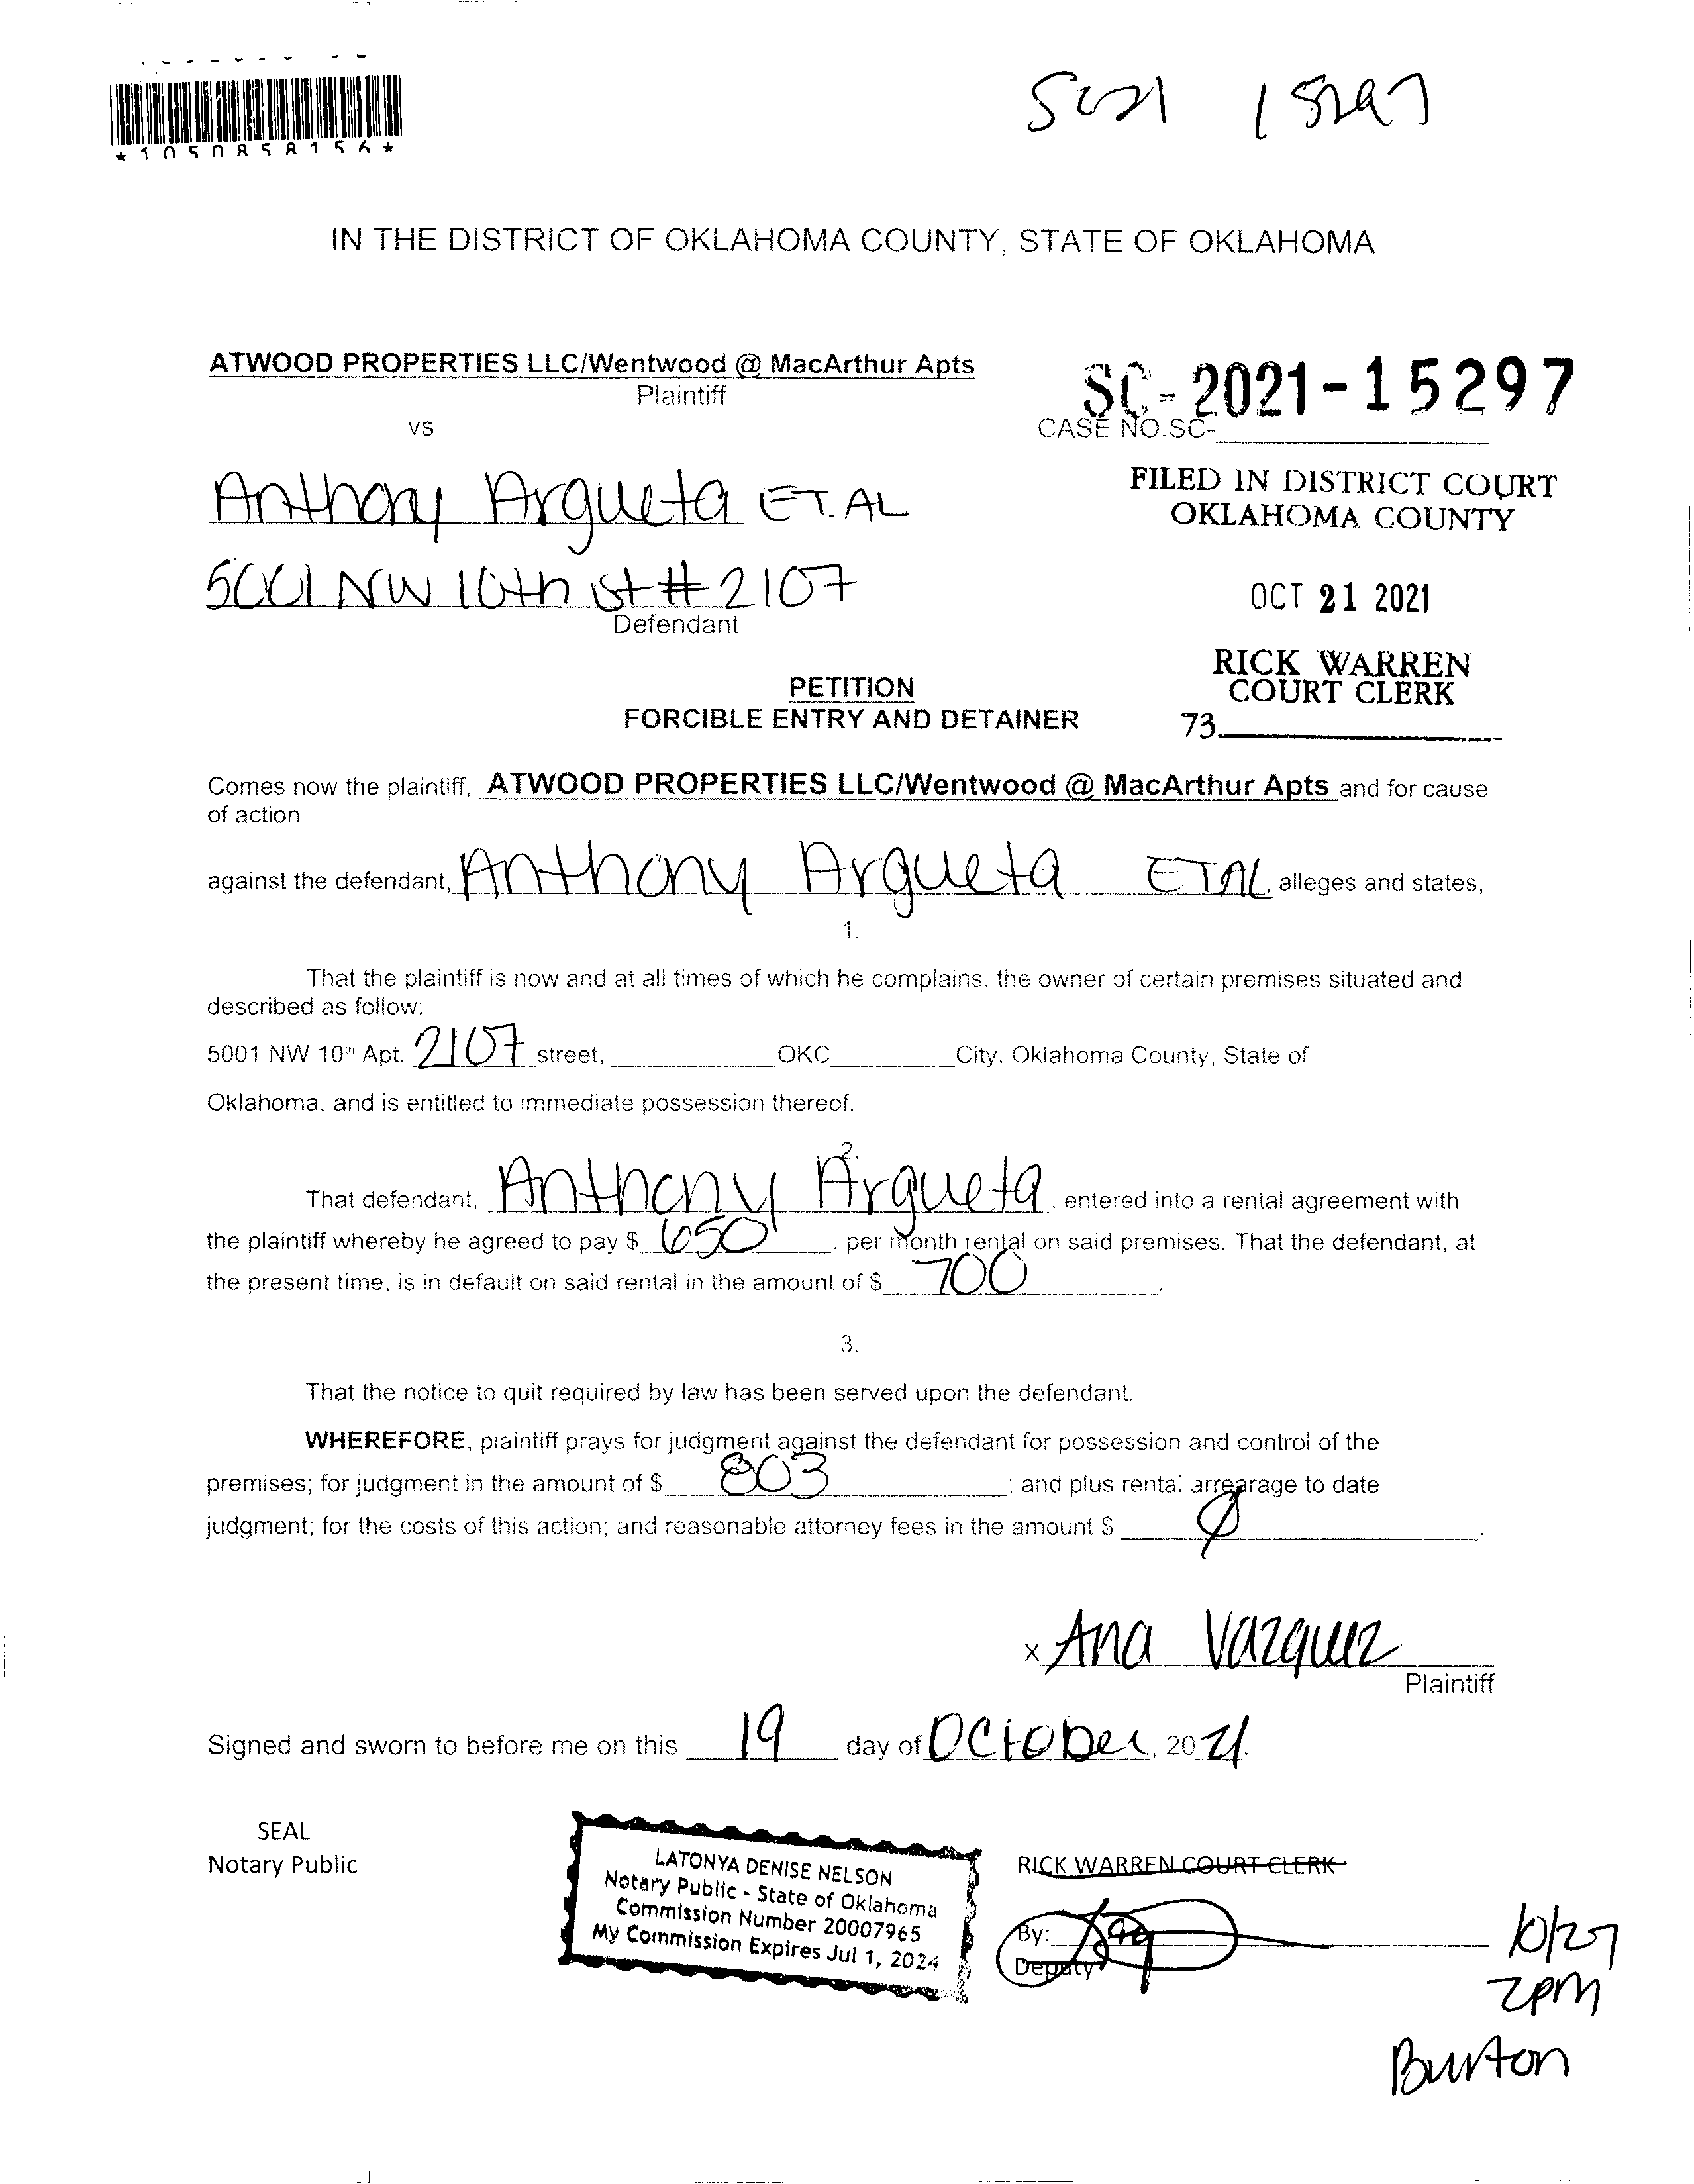 SC21 15297
*1050858156*
IN THE DISTRICT OF OKLAHOMA COUNTY, STATE OF OKLAHOMA
ATWOOD PROPERTIES LLC/Wentwood @ MacArthur Apts
Plaintiff
vs
SC-2021-15297
CASE NO.SC-
Anthony Argueta ET.AL
5001 NW 10th st # 2107
Defendant
FILED IN DISTRICT COURT
OKLAHOMA COUNTY
OCT 21 2021
RICK WARREN
COURT CLERK
73
PETITION
FORCIBLE ENTRY AND DETAINER
Comes now the plaintiff, ATWOOD PROPERTIES LLC/Wentwood @ MacArthur Apts and for cause
of action
against the defendant, Anthony Argueta ETAL, alleges and states,
1.
That the plaintiff is now and at all times of which he complains, the owner of certain premises situated and
described as follow:
5001 NW 10th Apt. 2107 street, OKC City, Oklahoma County, State of
Oklahoma, and is entitled to immediate possession thereof.
2.
That defendant, Anthony Argueta, entered into a rental agreement with
the plaintiff whereby he agreed to pay $ 650, per month rental on said premises. That the defendant, at
the present time, is in default on said rental in the amount of $ 700.
3.
That the notice to quit required by law has been served upon the defendant.
WHEREFORE, plaintiff prays for judgment against the defendant for possession and control of the
premises; for judgment in the amount of $ 803; and plus rental arrearage to date
judgment; for the costs of this action; and reasonable attorney fees in the amount $ Ø.
x Ana Vazquez
Plaintiff
Signed and sworn to before me on this 19 day of October, 2021.
SEAL
Notary Public
LATONYA DENISE NELSON
Notary Public - State of Oklahoma
Commission Number 20007965
My Commission Expires Jul 1, 2024
RICK WARREN COURT CLERK
By:
Deputy
10/27
2pm
Burton